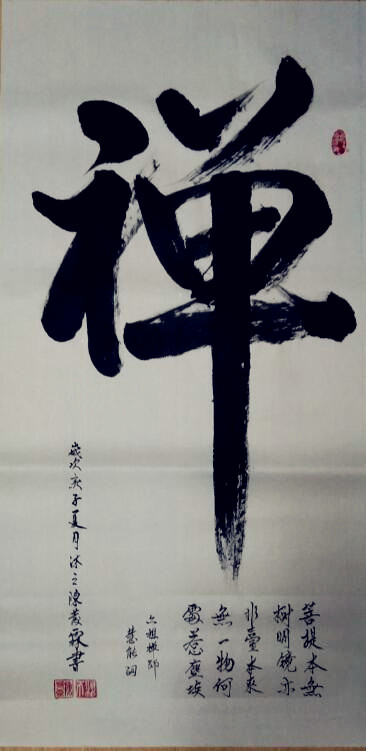 禅
菩提本無
树明镜亦
非臺本來
無一物何
處惹塵埃
六祖禅師
慧能詞
歲次庚子夏月陳書